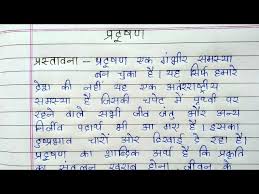 प्रदूषण
प्रस्तावना – प्रदूषण एक गंभीर समस्या
बन चुका है। यह सिर्फ हमारे
देश की नहीं यह एक अंतरराष्ट्रीय
समस्या है जिसकी चपेट में पृथ्वी पर
रहने वाले सभी जीव जंतु और अन्य
निर्जीव पदार्थ भी आ गए हैं। इसका
दुष्प्रभाव चारों ओर दिखाई दे रहा है।
प्रदूषण का शाब्दिक अर्थ है कि प्रकृति
का संतुलन खराब होना जीवन के